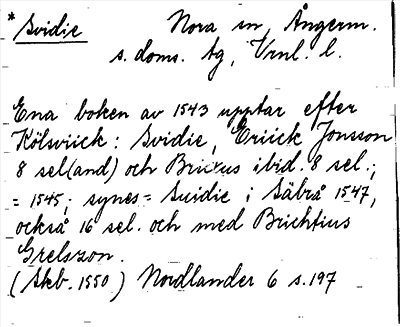 * Svidie Nora sn, Ångerm.
s. doms. tg, Vrnl. l.
Ena boken av 1543 upptar efter
Kölsviick: Svidie, Eriick Jonsson
8 sel(and) och Brictus ibid. 8 sel.;
= 1545; synes = Suidie i Säbrå 1547,
också 16 sel. och med Brichtius
Grelsson.
(Skb. 1550) Nordlander 6 s. 197